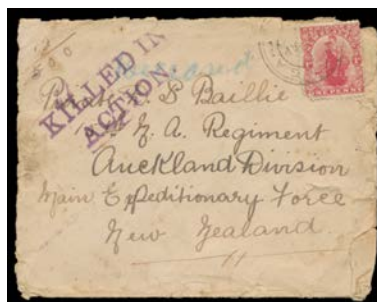 KILLED IN
ACTION
ONE PENNY
Private S Baillie
N.Z. A. Regiment
Auckland Division
Main Expeditionary Force
New Zealand